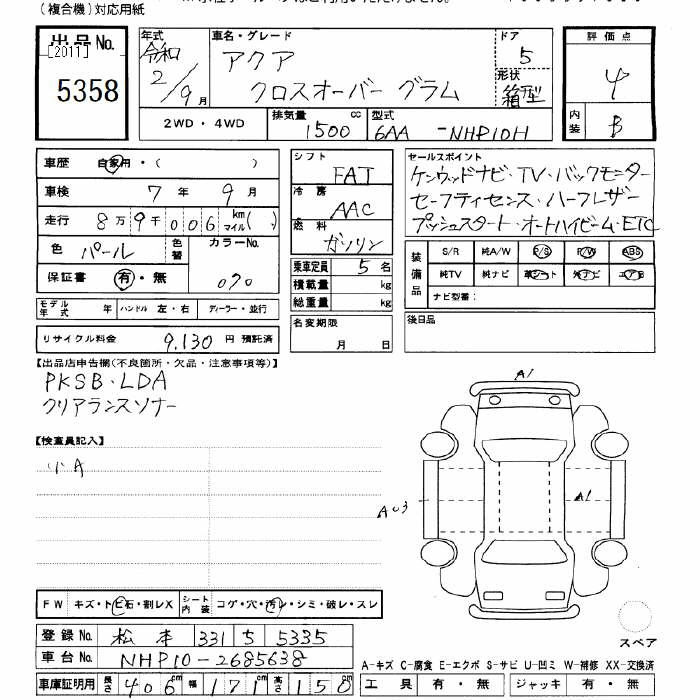 (複合機)対応用紙
出品No.
[2011]
5358
年式
令和
2/9月
車名・グレード
アクア
クロスオーバー グラム
ドア
5
形状
箱型
評価点
4
内装
B
2WD・4WD
排気量
1500 cc
型式
6AA -NHP10H
車歴 自家用・( )
車検 7年 9月
走行 8万9千006 km マイル( )
色 パール
色替
カラーNo.
070
保証書 有・無
モデル年式 年 ハンドル 左・右 ディーラー・並行
リサイクル料金 9,130円 預託済
シフト
FAT
冷房
AAC
燃料
ガソリン
乗車定員 5名
積載量 kg
総重量 kg
名変期限
月 日
セールスポイント
ケンウッドナビ・TV・バックモニター
セーフティセンス・ハーフレザー
プッシュスタート・オートハイビーム・ETC
装備品
S/R 純A/W P/S P/W ABS
純TV 純ナビ 革シート 外ナビ エアB
ナビ型番:
後日品
【出品店申告欄(不良箇所・欠品・注意事項等)】
PKSB・LDA
クリアランスソナー
【検査員記入】
小A
A1
A1
AU3
FW キズ・トビ石・割レX
シート内装 コゲ・穴・汚レ・シミ・破レ・スレ
登録No. 松本 331 5 5335
車台No. NHP10-2685638
車庫証明用 長さ 406cm 幅 171cm 高さ 150cm
スペア
A-キズ C-腐食 E-エクボ S-サビ U-凹ミ W-補修 XX-交換済
工具 有・無 ジャッキ 有・無